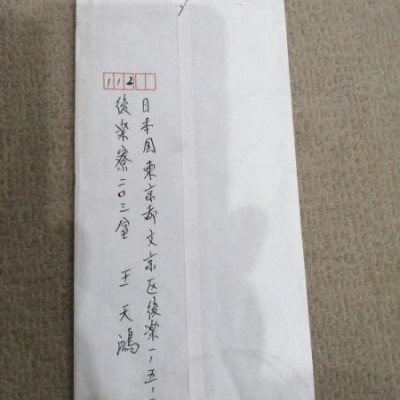 112
日本国東京都文京区後楽一,五,
後楽寮二〇三室 王天鴻